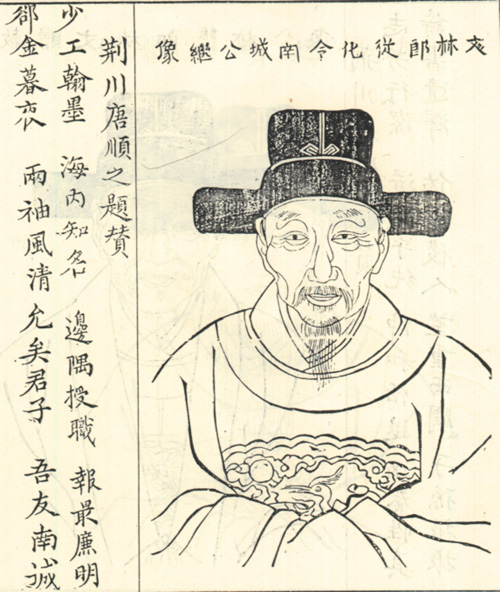 文林郎從化令南城公繼像
荆川唐順之題贊
少工翰墨 海內知名 邊隅授職 報最廉明
郤金暮夜 兩袖風清 允矣君子 吾友南誠